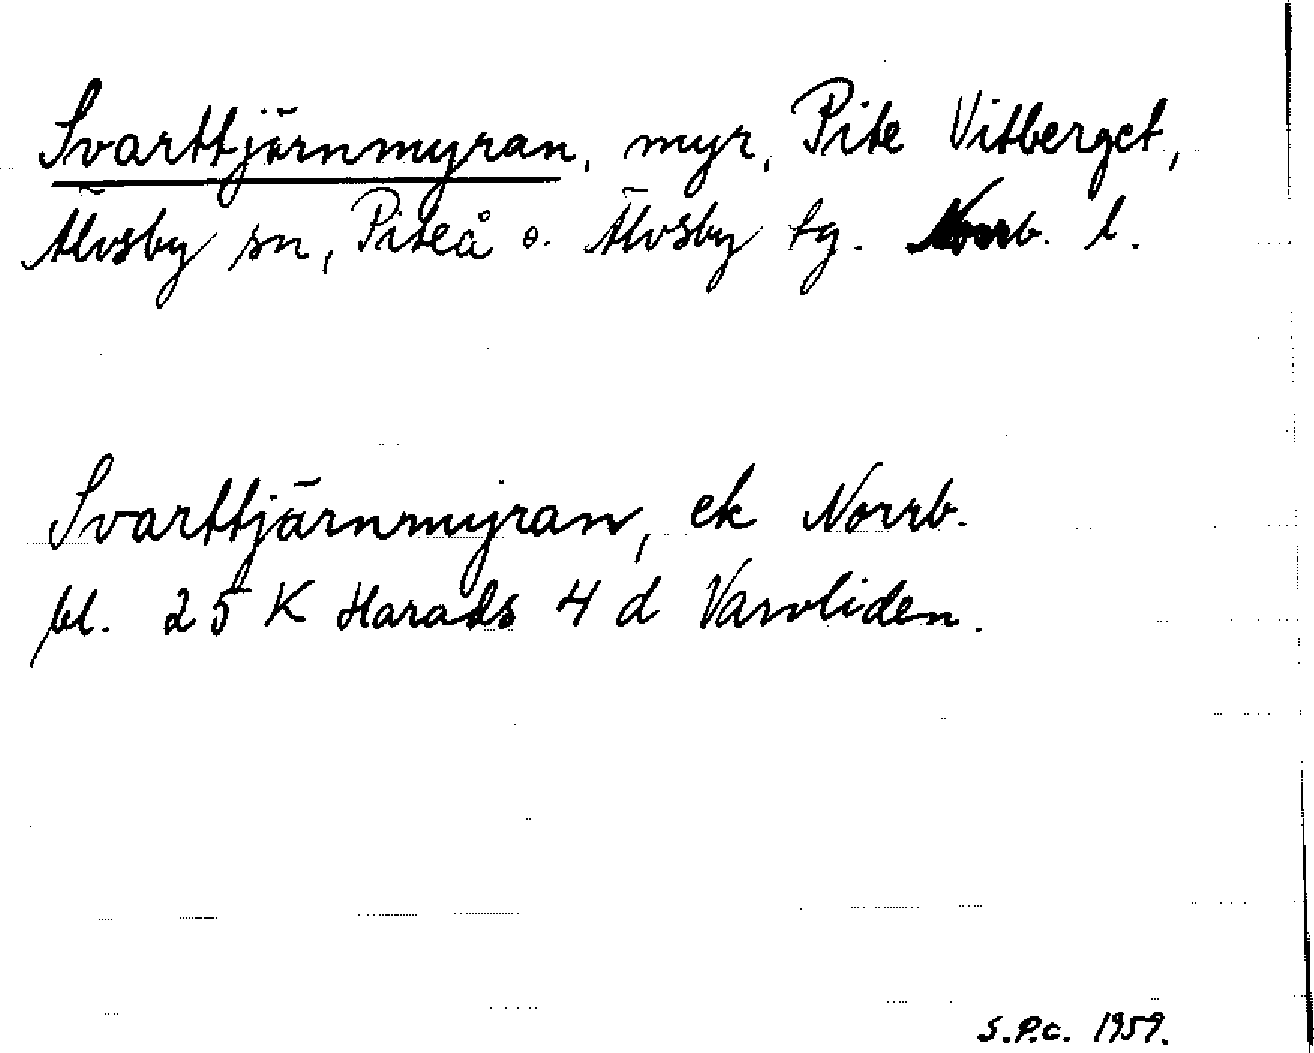 Svarttjärnmyran, myr, Pite Vitberget,
Älvsby sn, Piteå o. Älvsby tg. Norrb. l.
Svarttjärnmyran, ek Norrb.
bl. 25 K Harads 4 d Varvliden.
S.P.C. 1959.